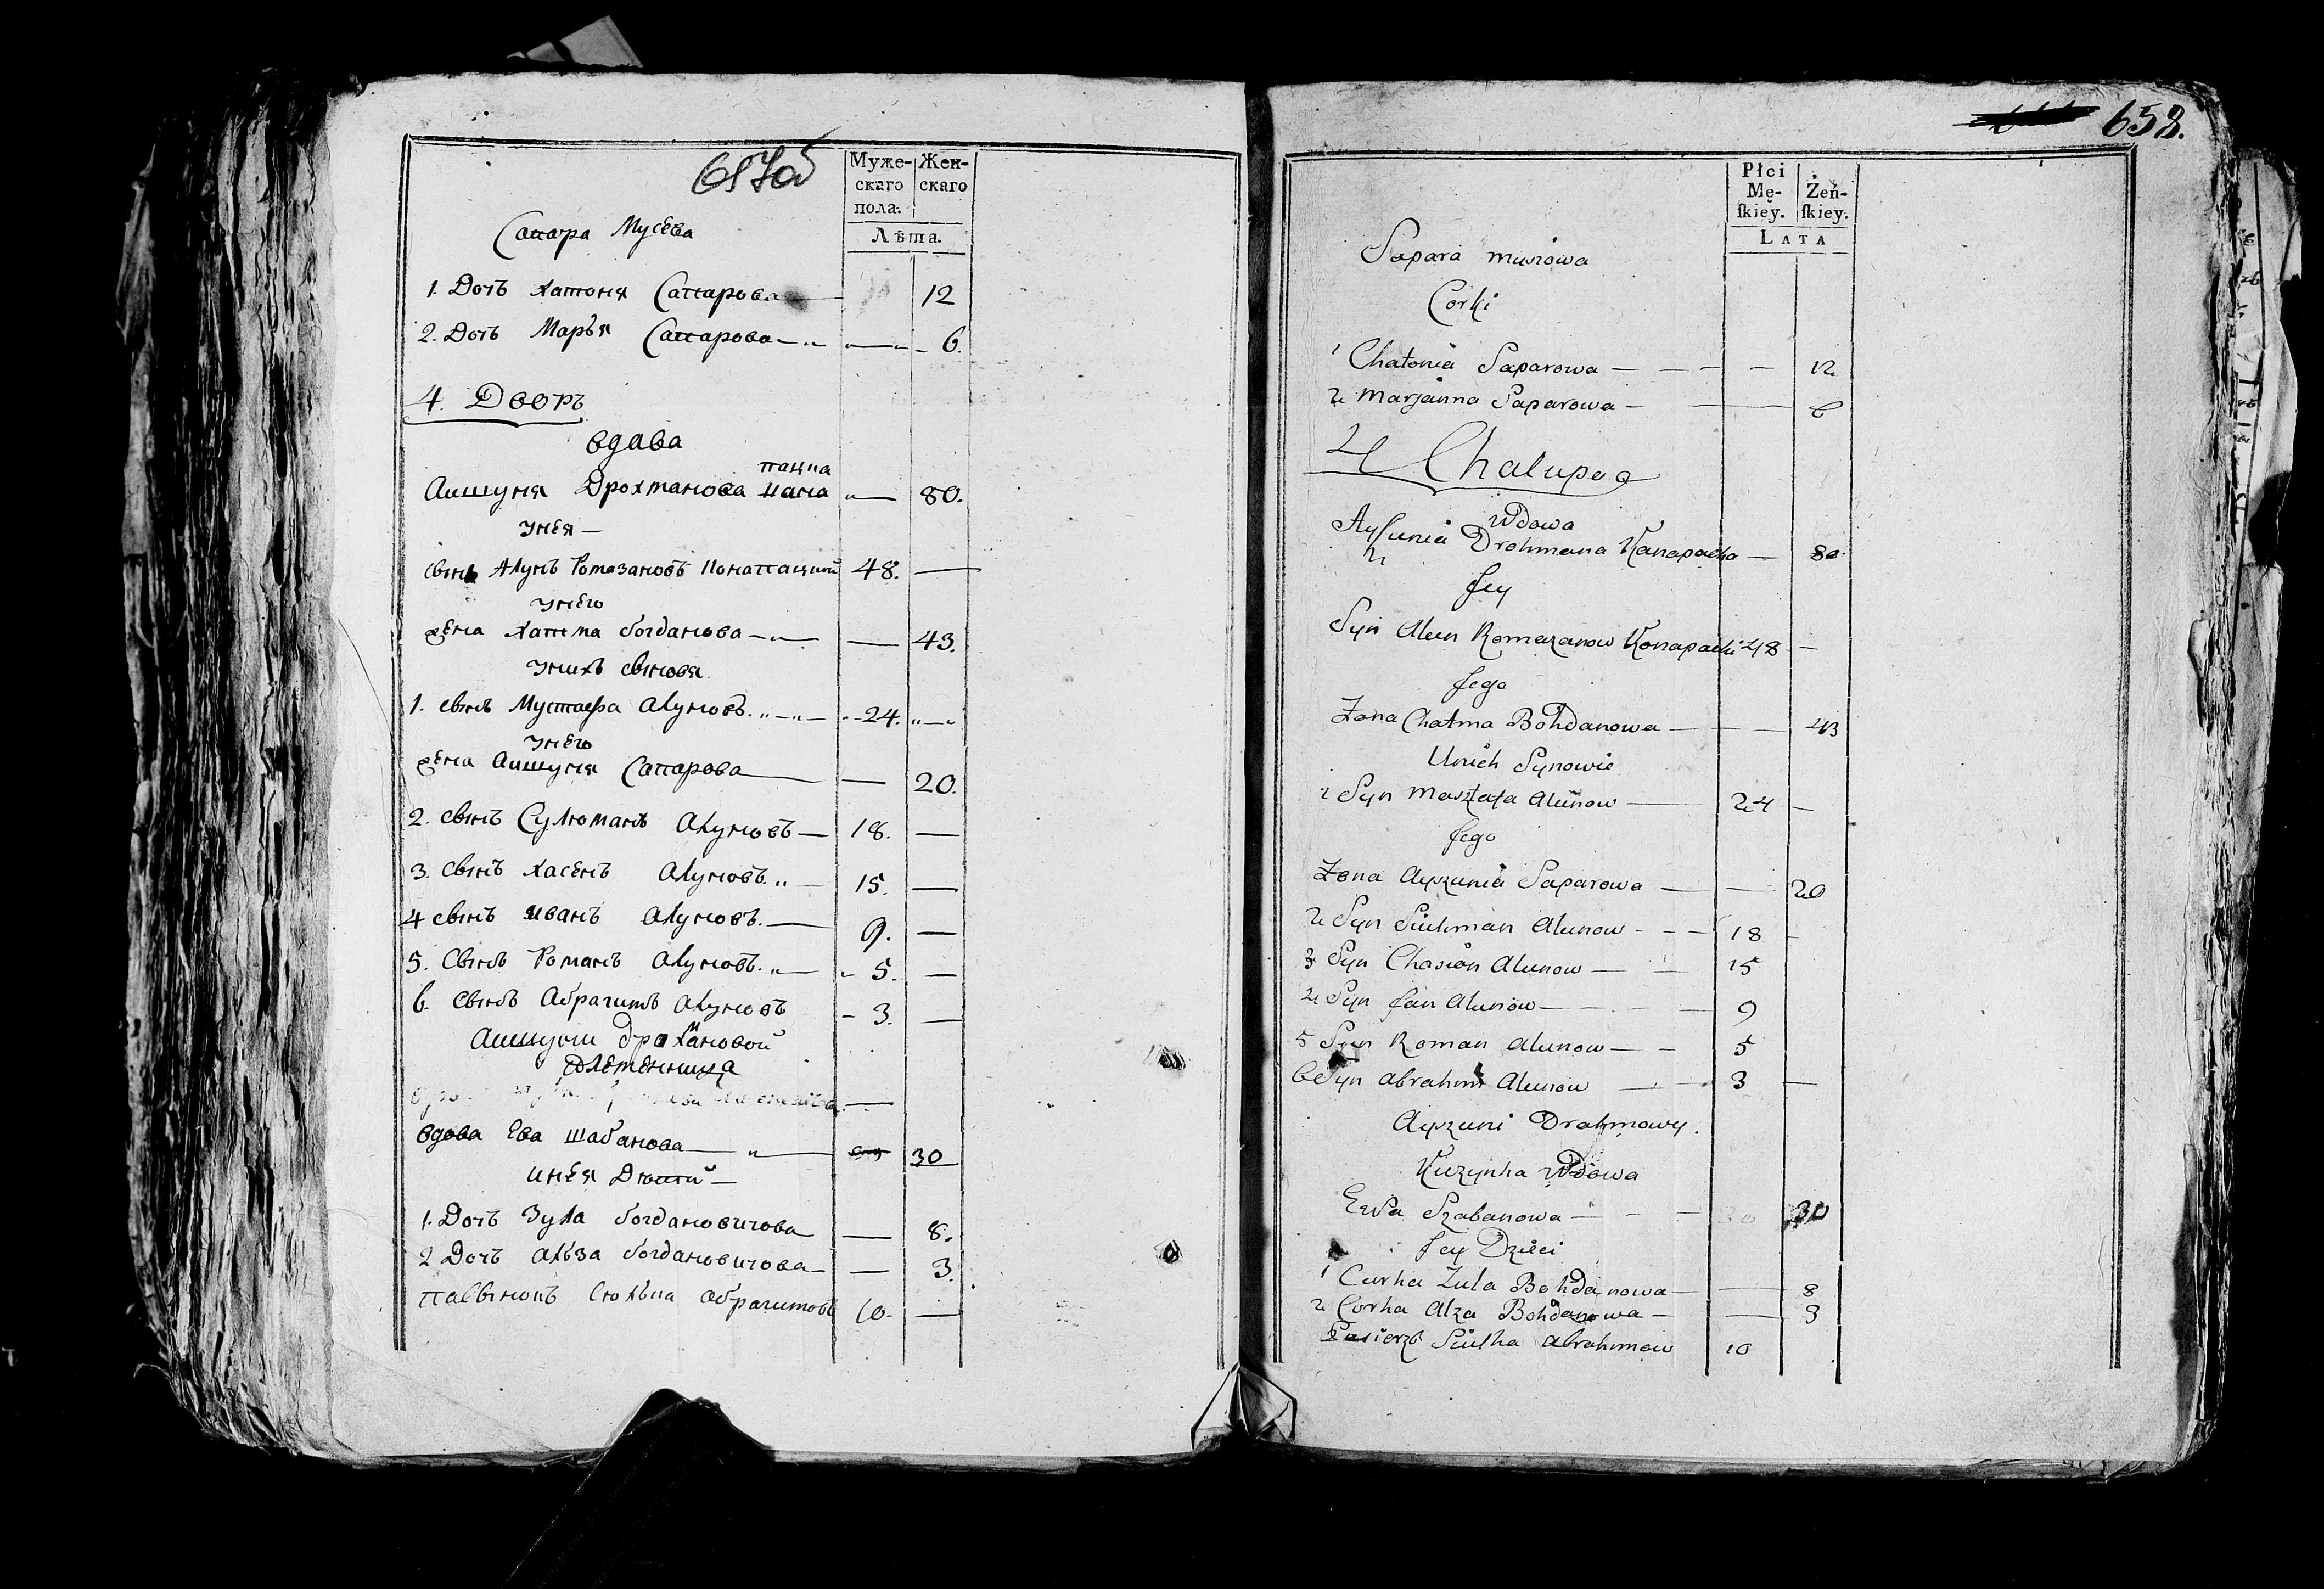 657об
Муже- Жен-
скаго скаго
пола.
Лѣта.
Сапара Мусева
1. Дочъ Хатоня Сапарова — 12
2. Дочъ Марья Сапарова — 6.
4. Дворъ
вдава
пацка
Аишуня Дрохманова Кана — 80.
унея —
сынъ Алунъ Ромазановъ Конапацкий 48. —
унего
жена Хатма богданова — — 43.
унихъ сыновя
1. сынъ Мустафа Алуновъ. — 24. —
унего
жена Аишуня Сапарова — — 20.
2. сынъ Сулюманъ Алуновъ — 18. —
3. сынъ Хасенъ Алуновъ. — 15. —
4 сынъ иванъ Алуновъ. — 9. —
5. Сынъ Романъ Алуновъ. — 5. —
6. сынъ Абрагимъ Алуновъ — 3. —
Аишуни Дрохмановой
племенница
вдова Ева шабанова — 30
инея Дюти —
1. Дочъ Зула богдановичова — 8.
2 Дочъ Альза богдановичова — — 3.
пасынокъ Сюлька Абрагимовъ 10. —
658.
Płci
Mę- Żeń-
ſkiey. ſkiey.
LATA
Sapara musiowa
Corki
1 Chatonia Saparowa — — — — 12
2 Marjanna Saparowa — — 6
4 Chalupa
Wdowa
Ayſunia Drohmana Kanapacka — 80
Jey
Syn Alun Romazanow Konapacki 48 —
Jego
Zona Chatma Bohdanowa — — — 43
Unich Synowie
1 Syn Mustafa Alunow — 24 —
Jego
Zona Ayszunia Saparowa — — 20
2 Syn Siulman Alunow - - — 18 -
3 Syn Chasion Alunow — — 15
4 Syn Jan Alunow — — 9
5 Syn Roman Alunow — — 5
6 Syn Abrahim Alunow — — 3 —
Ayszuni Drahmowy.
Kuzynka Wdowa
Ewa Szabanowa — - — 30
Jey Dzieci
1 Curka Zula Bohdanowa — — 8
2 Corka Alza Bohdanowa — — 3
Pasierzb Siulka Abrahimow 10